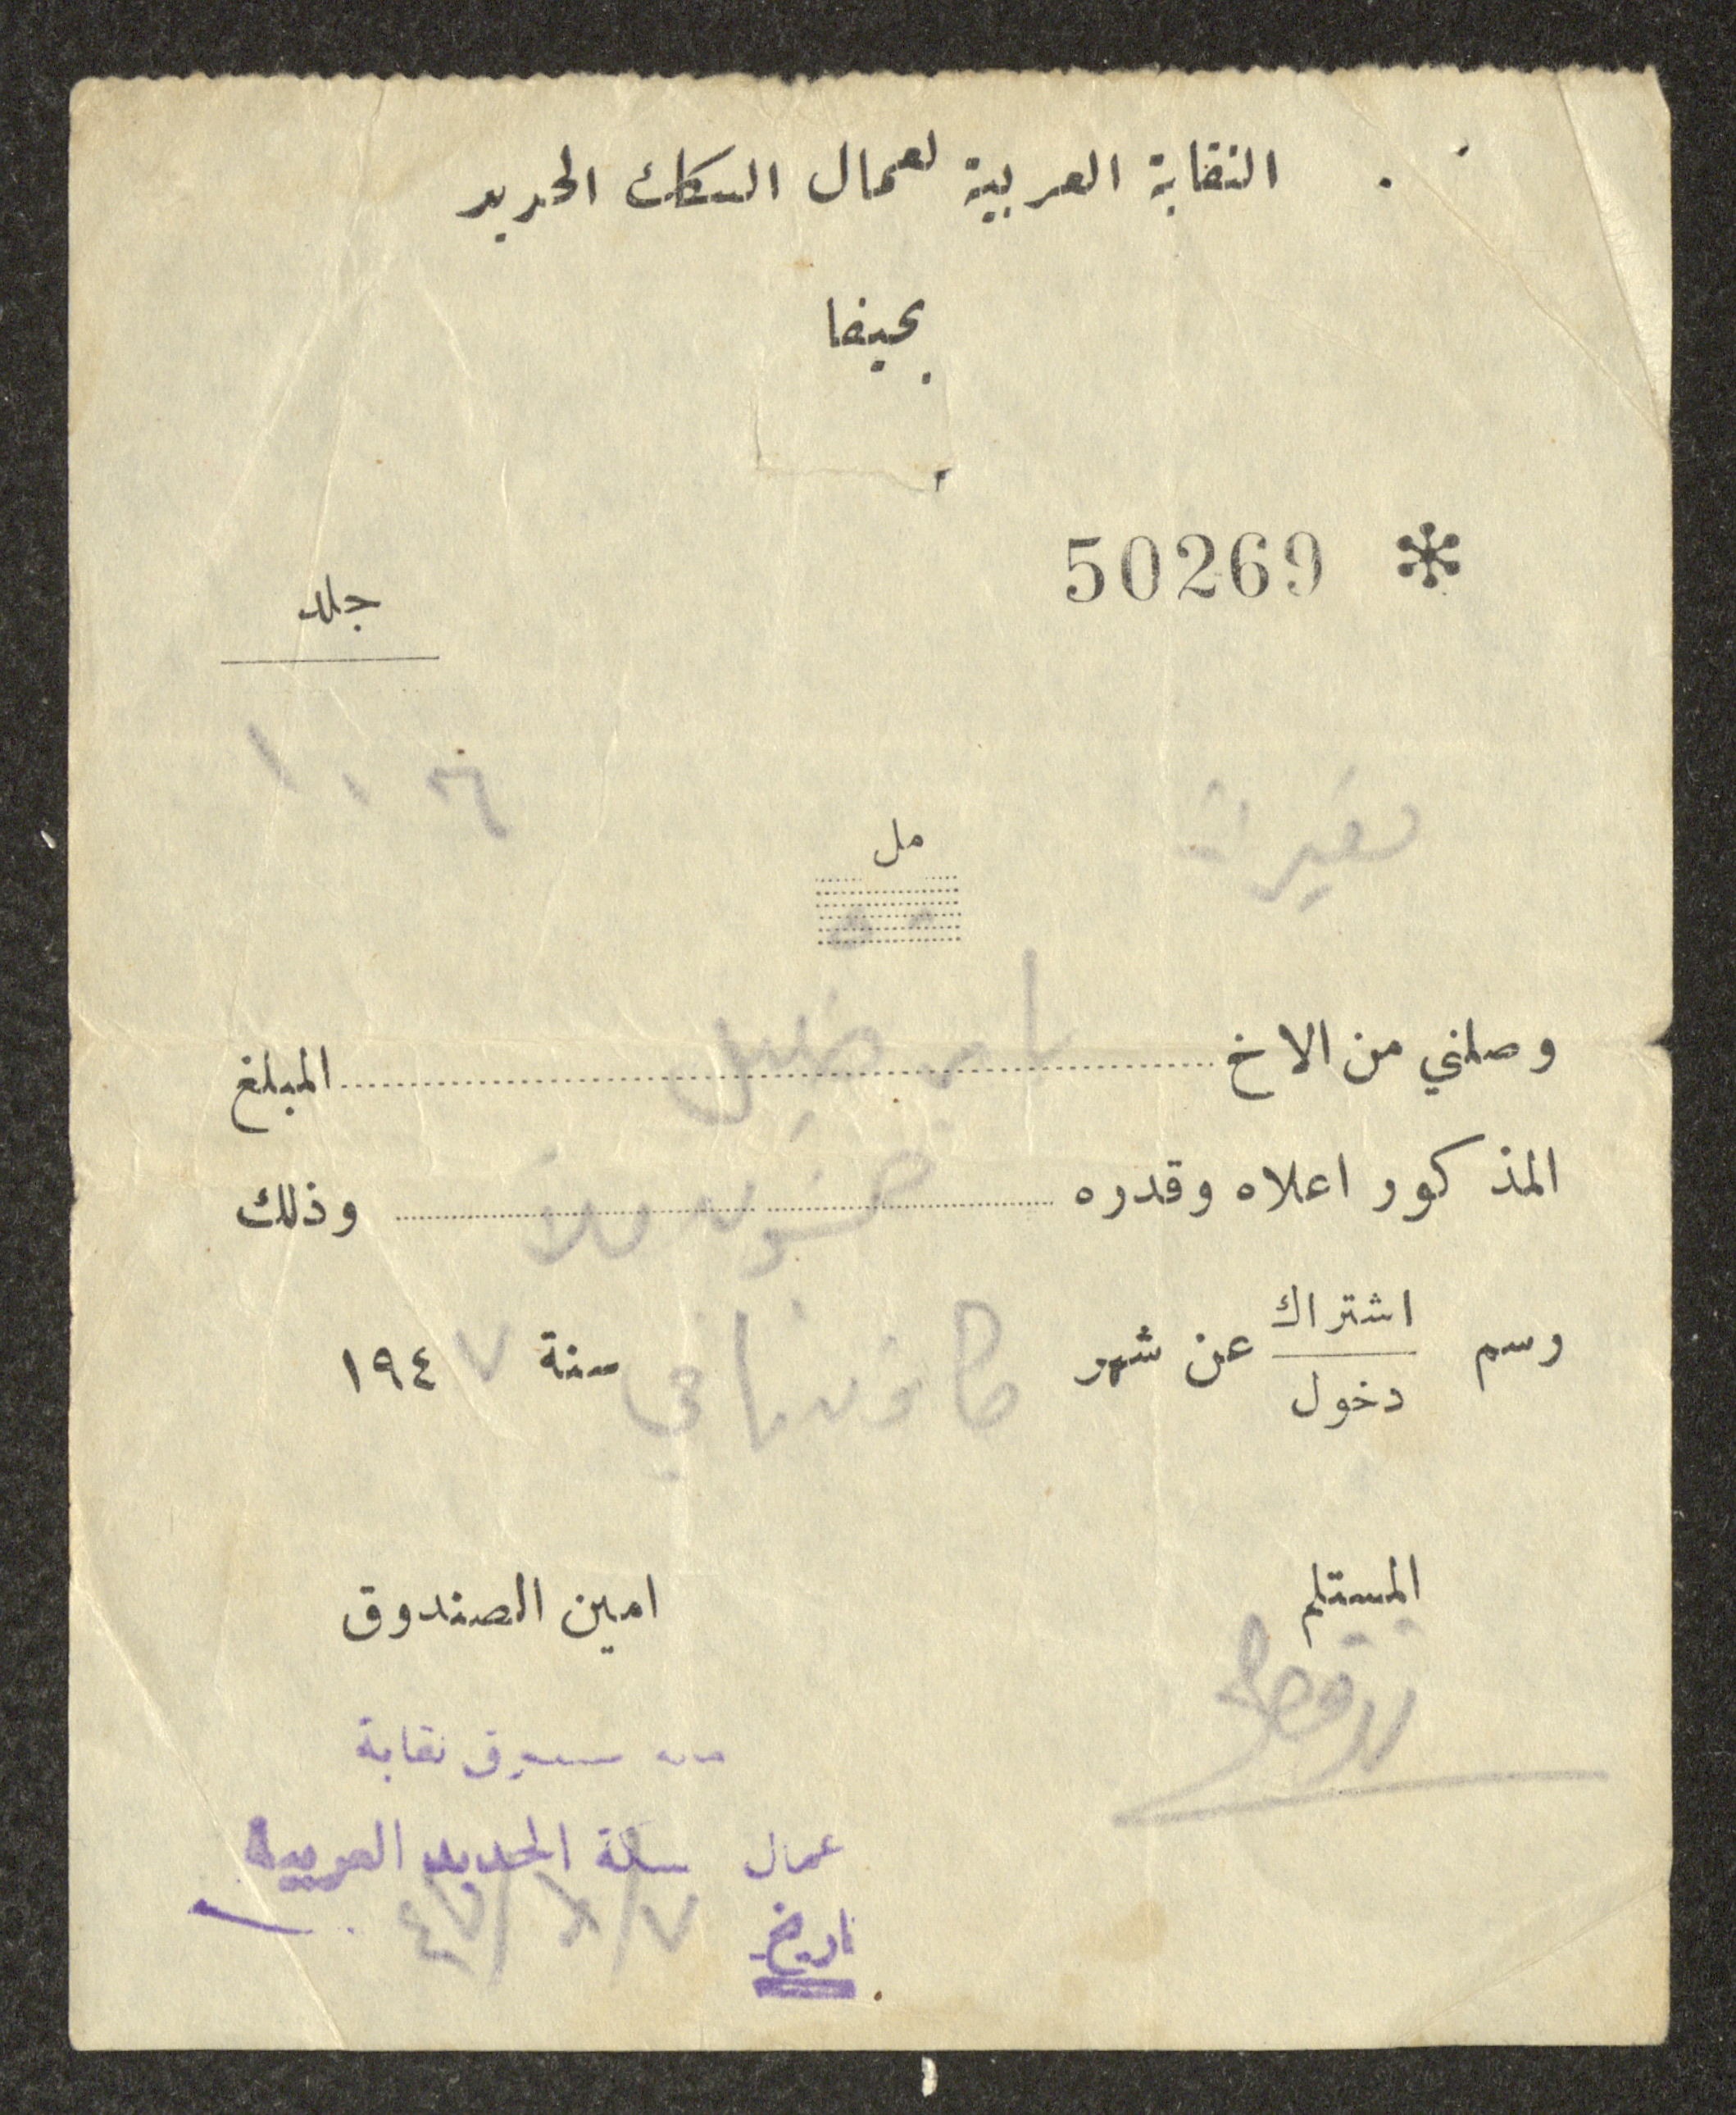 النقابة العربية لعمال السكك الحديد
بحيفا
50269 *
جلد
مل
وصلني من الاخ خليل المبلغ
المذكور اعلاه وقدره خمسون ملاً وذلك
رسم اشتراك / دخول عن شهر كانون ثاني سنة ١٩٤٧
المستلم
امين الصندوق
نقابة
عمال سكة الحديد العربية
تاريخ